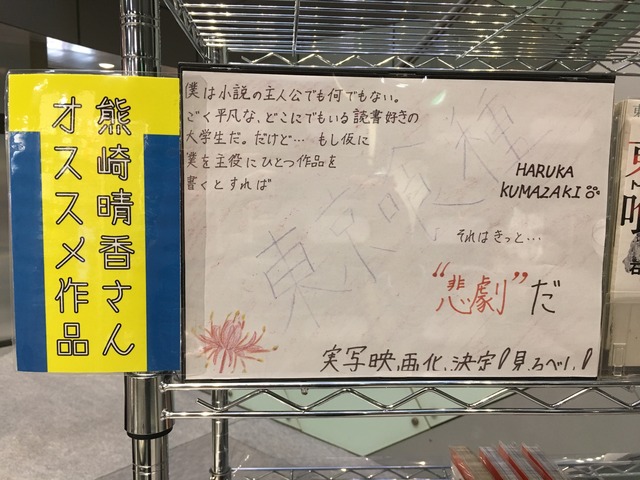 熊崎晴香さん
オススメ作品
僕は小説の主人公でも何でもない。
ごく平凡な、どこにでもいる読書好きの
大学生だ。だけど… もし仮に
僕を主役にひとつ作品を
書くとすれば
東京喰種
HARUKA
KUMAZAKI
それはきっと…
“悲劇”だ
実写映画化、決定!見るべし!
喰